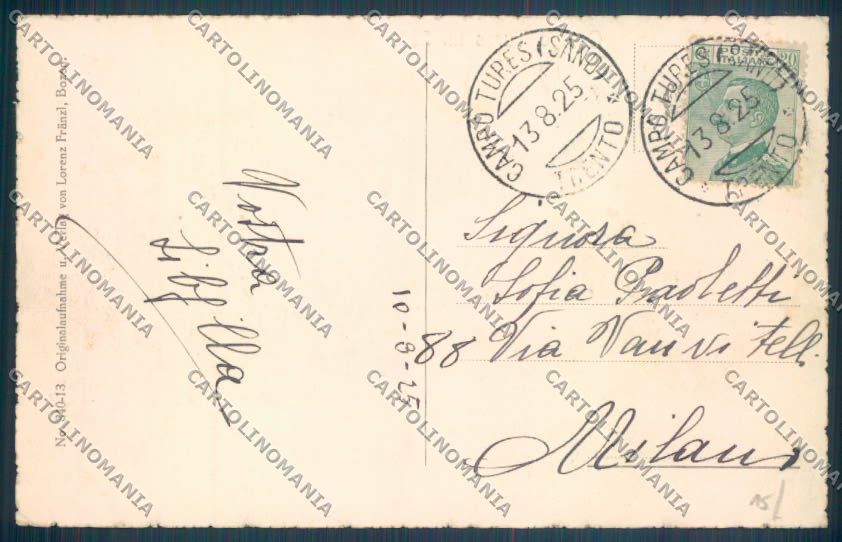 No. 840-13 Originalaufnahme u. Verlag von Lorenz Fränzl, Bozen.
Vostra
Sibilla
10-8-25
CAMPO TURES (SAND)
13.8.25
TRENTO
CAMPO TURES (SAND)
13.8.25
TRENTO
POSTE
ITALIANE
20
Signora
Sofia Paoletti
88 Via Vanvitelli
Milano
CARTOLINOMANIA